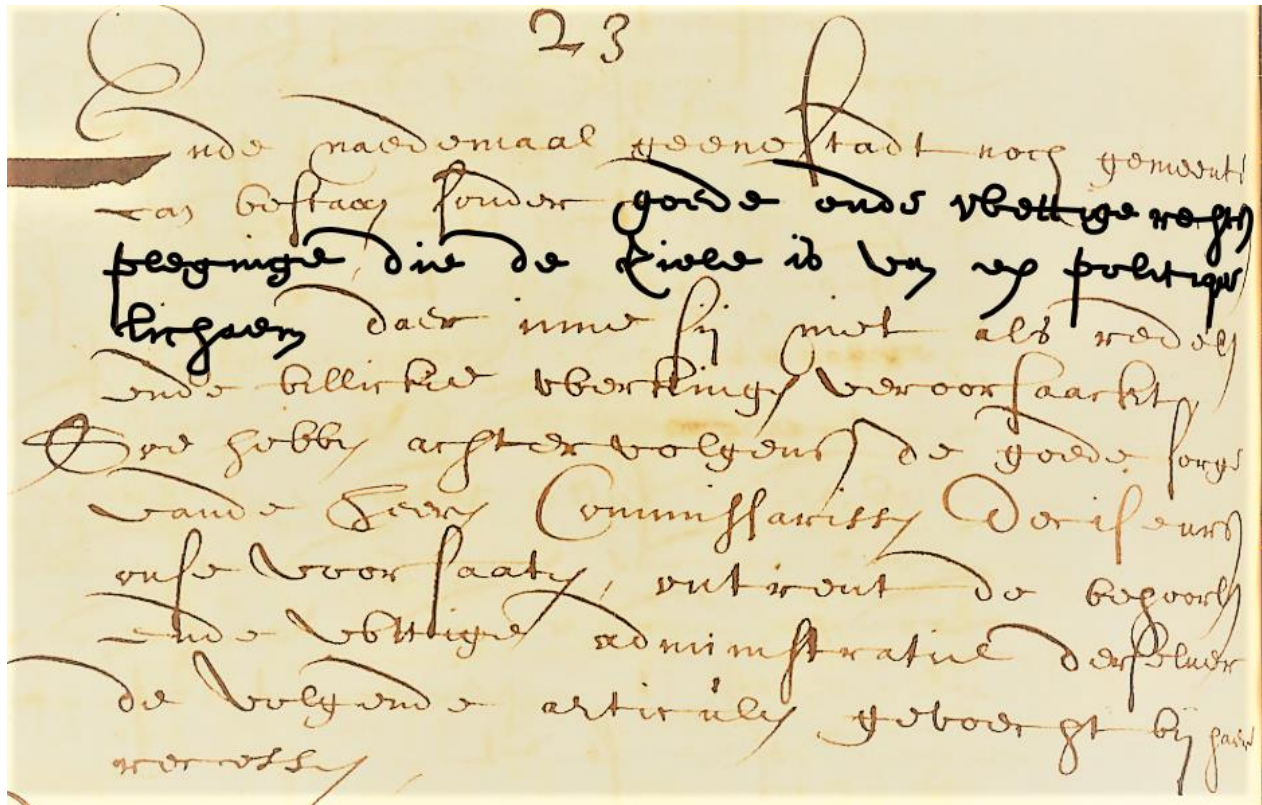 23
Ende naedemaal geene stadt noch gemeente
can bestaen sonder goede ende wettige rechts
pleginge, die de Ziele is van een politique
lichaem daer inne sij niet als redelijcke
ende billickie werkinge veroorsaackt,
Soe hebben achtervolgens de goede sorge
vande Heeren Commissarissen Deciseurs
onse voorsaaten, ontrent de behoorlijcke
ende wettige administratie derselver
de volgende articulen gevoecht bij haer
recessen,